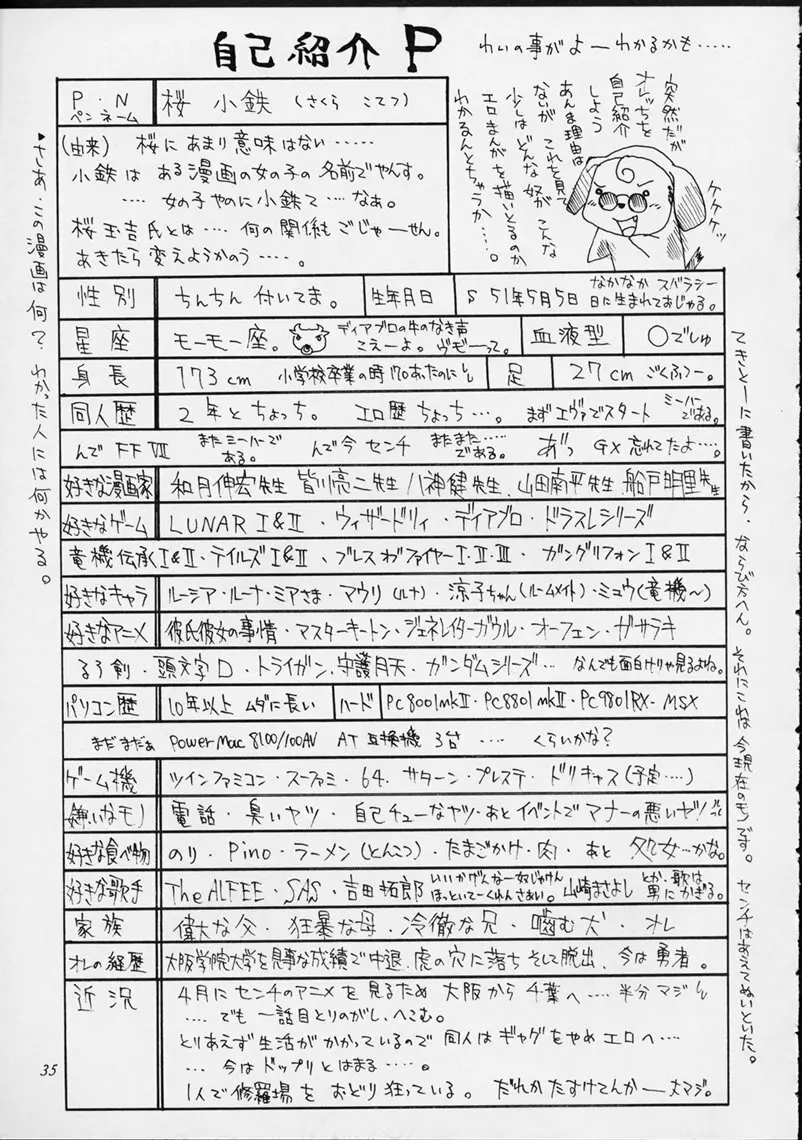 自己紹介P
わいの事がよーわかるかも‥‥‥
突然だが
オレっちを
自己紹介
しよう
あんま理由は
ないが これを見て
少しは どんな奴が こんな
エロまんがを描いとるのか
わかるんとちゃうか‥‥。
ケケケッ
P・N
ペンネーム
桜 小鉄 (さくら こてつ)
(由来) 桜にあまり意味はない‥‥‥
小鉄は ある漫画の女の子の名前でやんす。
‥‥ 女の子やのに小鉄て‥‥なぁ。
桜玉吉氏とは‥‥ 何の関係もごじゃーせん。
あきたら変えようかのう‥‥‥。
性別
ちんちん 付いてま。
生年月日
S51年5月5日
なかなか スバラシー
日に生まれておじゃる。
星座
モーモー座。
ディアブロの牛のなき声
こえーよ。ヴモーって。
血液型
〇でしゅ
身長
173cm 小学校卒業の時170あったのに
足
27cm ごくふつー。
同人歴
2年とちょっち。 エロ歴ちょっち‥‥。 まずエヴァでスタート ミーハーである。
んで FFⅦ またミーハーである。 んで今 センチ またまた‥‥である。 あっ GX忘れてたよ‥‥。
好きな漫画家
和月伸宏先生 皆川亮二先生 八神健先生、山田南平先生、船戸明里先生
好きなゲーム
LUNAR I&Ⅱ・ウィザードリィ・ディアブロ・ドラスレシリーズ
竜機伝承I&Ⅱ・テイルズI&Ⅱ、ブレスオブファイヤーI・Ⅱ・Ⅲ・ ガングリフォンI&Ⅱ
好きなキャラ
ルーシア・ルーナ・ミアさま・マウリ(ルナ)・涼子ちゃん(ルームメイト)・ミュウ(竜機〜)
好きなアニメ
彼氏彼女の事情・マスターキートン・ジェネレイターガウル・オーフェン・ガサラキ
るろ剣・頭文字D・トライガン、守護月天・ガンダムシリーズ‥‥ なんでも面白けりゃ見るよね。
パソコン歴
10年以上 ムダに長い
ハード
PC8001mkⅡ・PC8801mkⅡ・PC9801RX・MSX
まだまだぁ Power Mac 8100/100AV AT互換機 3台 ‥‥ くらいかな?
ゲーム機
ツインファミコン・スーファミ・64、サターン・プレステ・ドリキャス(予定‥‥)
嫌いなモノ
電話・臭いヤツ・自己チューなヤツ・あとイベントでマナーの悪いヤツ!
好きな食べ物
のり・Pino・ラーメン(とんこつ)・たまごかけ・肉・あと 処女‥‥かな。
好きな歌手
The ALFEE・SAS・吉田拓郎
いいかげんなー奴じゃけん
ほっといてーくれんさあい。
山崎まさよし
とか、歌は
男にかぎる。
家族
偉大な父・狂暴な母・冷徹な兄・噛む犬・オレ
オレの経歴
大阪学院大学を見事な成績で中退、虎の穴に落ち そして脱出、今は勇者。
近況
4月にセンチのアニメを見るため 大阪から千葉へ‥‥ 半分マジ
‥‥でも 一話目とりのがし、へこむ。
とりあえず生活がかかっているので 同人はギャグをやめ エロへ‥‥
‥‥今はドップリとはまる‥‥。
1人で修羅場を おどり狂っている。 だれかたすけてんかー 大マジ。
・さあ・この漫画は何? わかった人には何かやる。
てきとーに書いたから、ならび方へん。それにこれは今現在のモンです。センチはあえてぬいといた。
35